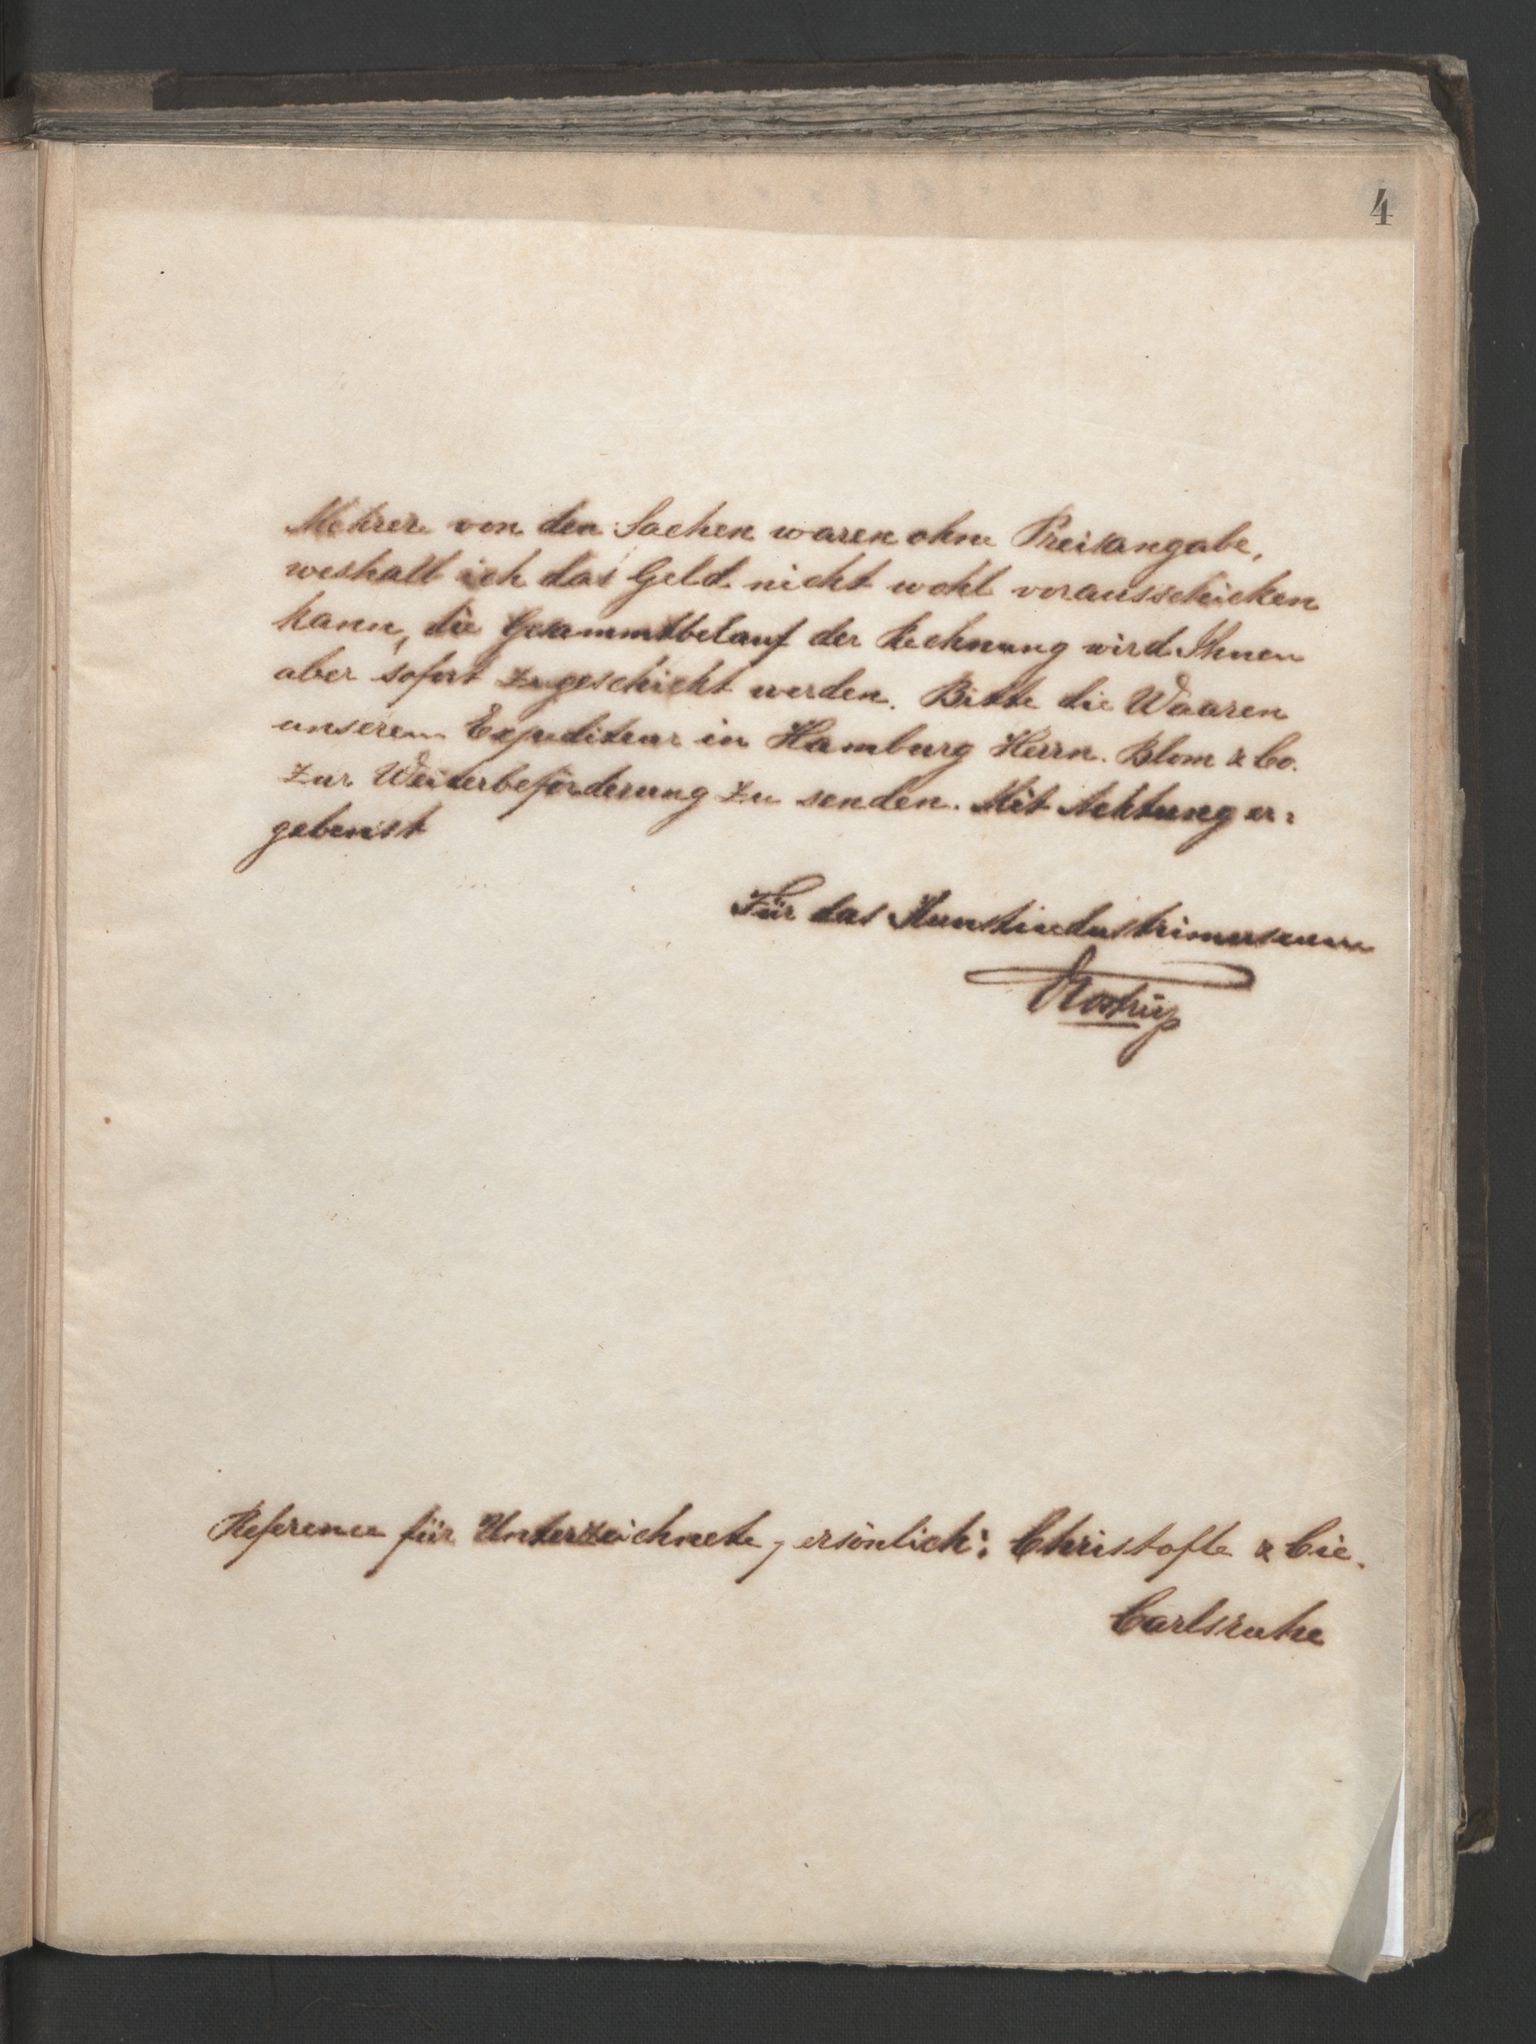 4
Mehrere von den Sachen waren ohne Preisangabe,
weshalb ich das Geld nicht wohl vorausschicken
kann, die Gesammtbelauf der Rechnung wird Ihnen
aber sofort zugeschickt werden. Bitte die Waaren
unserem Expediteur in Hamburg Herrn. Blom & Co.
zur Weiterbeförderung zu senden. Mit Achtung er-
gebenst
Für das Kunstindustrimuseum
Grostrup
Reference für Unterzeichnete, persönlich: Christofle & Cie.
Carlsruhe